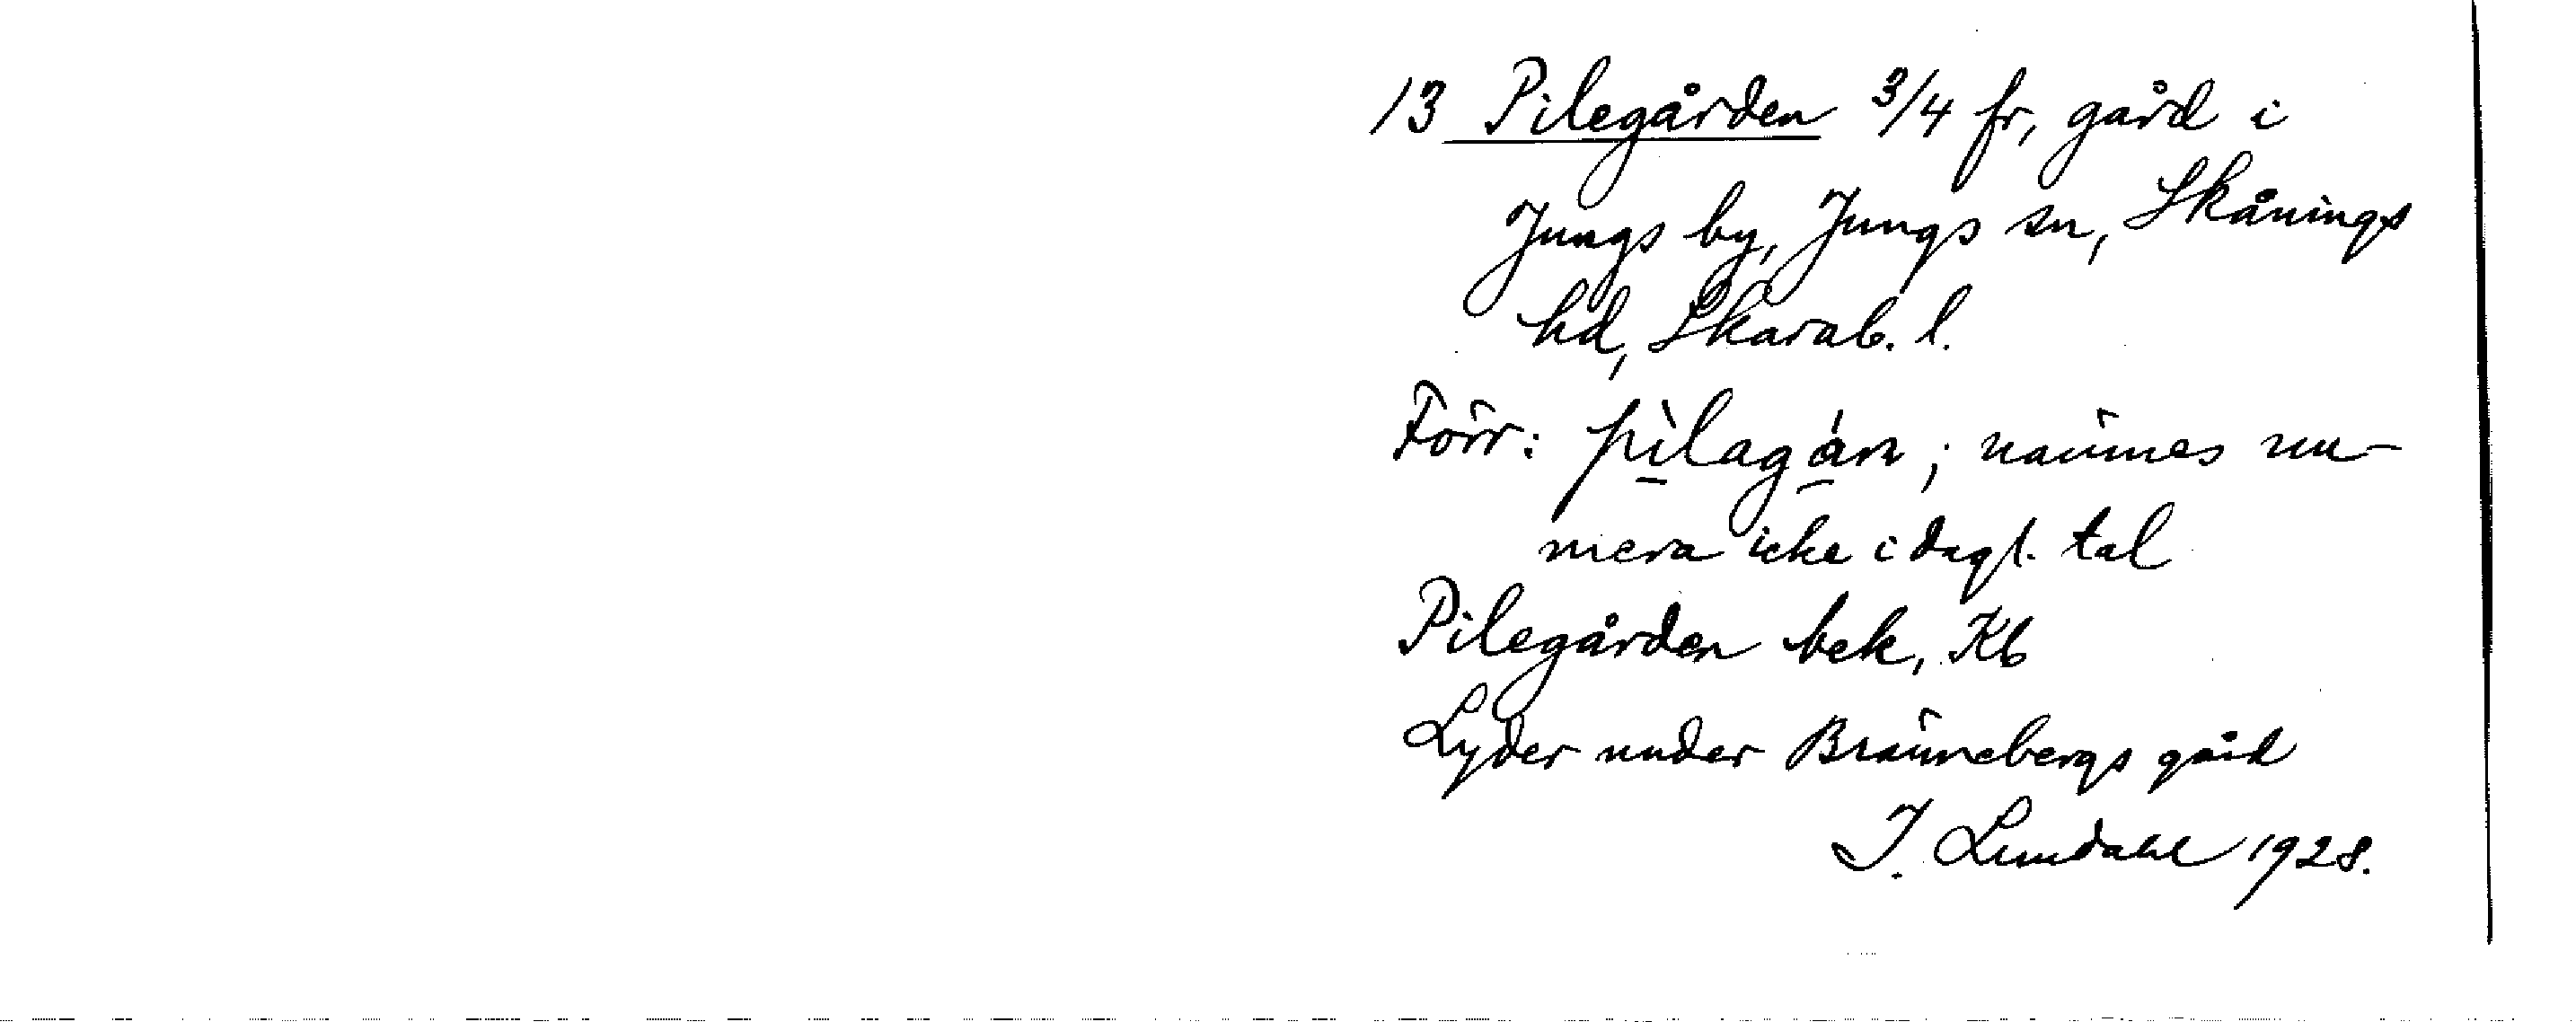 13 Pilegården 3/4 fr, gård i
Jungs by, Jungs sn, Skånings
hd, Skarab. l.
Förr: pìlagán; nämnes nu-
mera icke i dagl. tal
Pilegården bek, Kb
Lyder under Brännebergs gård
J. Lundahl 1928.